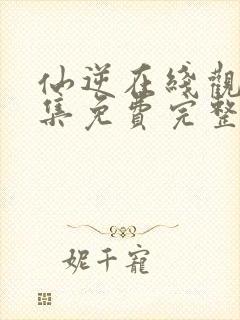 仙逆在綫觀
集免費完整
妮千寵